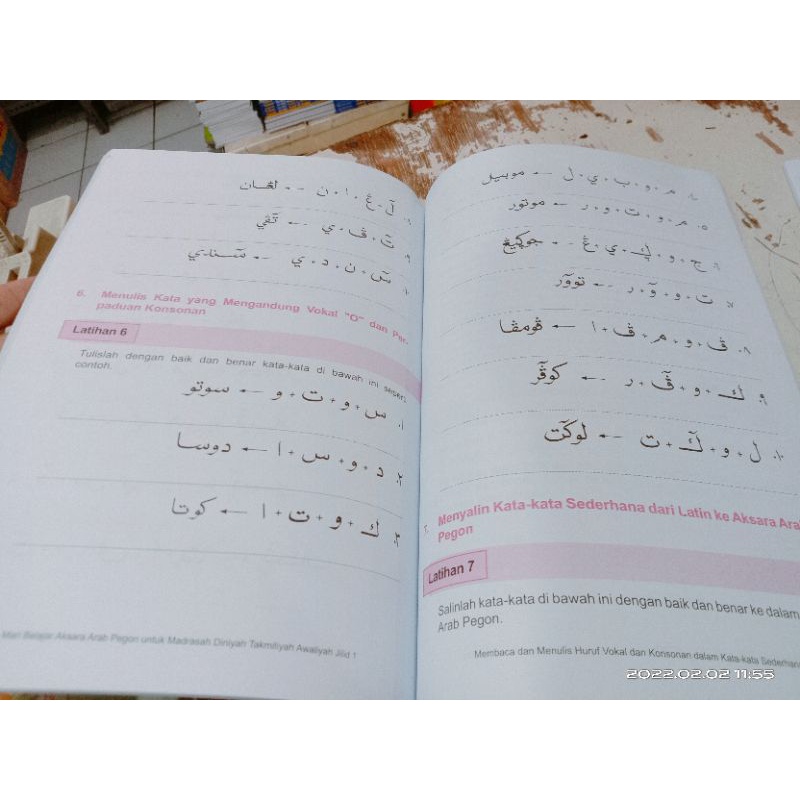 ٨. لٓ + غ + ا + ن ← لٓغان
٩. تٓ + ڤ + ي ← تٓڤي
١٠. سٓ + ن + د + ي ← سٓندي
6. Menulis Kata yang Mengandung Vokal "O" dan Per-
paduan Konsonan
Latihan 6
Tulislah dengan baik dan benar kata-kata di bawah ini seperti
contoh.
١. س + و + ت + و ← سوتو
٢. د + و + س + ا ← دوسا
٣. ك + و + ت + ا ← كوتا
Mari Belajar Aksara Arab Pegon untuk Madrasah Diniyah Takmiliyah Awaliyah Jilid 1
م + و + ب + ي + ل ← موبيل
٥. م + و + ت + و + ر ← موتور
ت + و + وٓ + ر ← تووٓر
٨. ڤ + و + م + ڤ + ا ← ڤومڤا
٩. ك + و + ڤٓ + ر ← كوڤٓر
١٠. ل + و + كٓ + ت ← لوكٓت
7. Menyalin Kata-kata Sederhana dari Latin ke Aksara Arab
Pegon
Latihan 7
Salinlah kata-kata di bawah ini dengan baik dan benar ke dalam
Arab Pegon.
Membaca dan Menulis Huruf Vokal dan Konsonan dalam Kata-kata Sederhana
2022.02.02 11:55